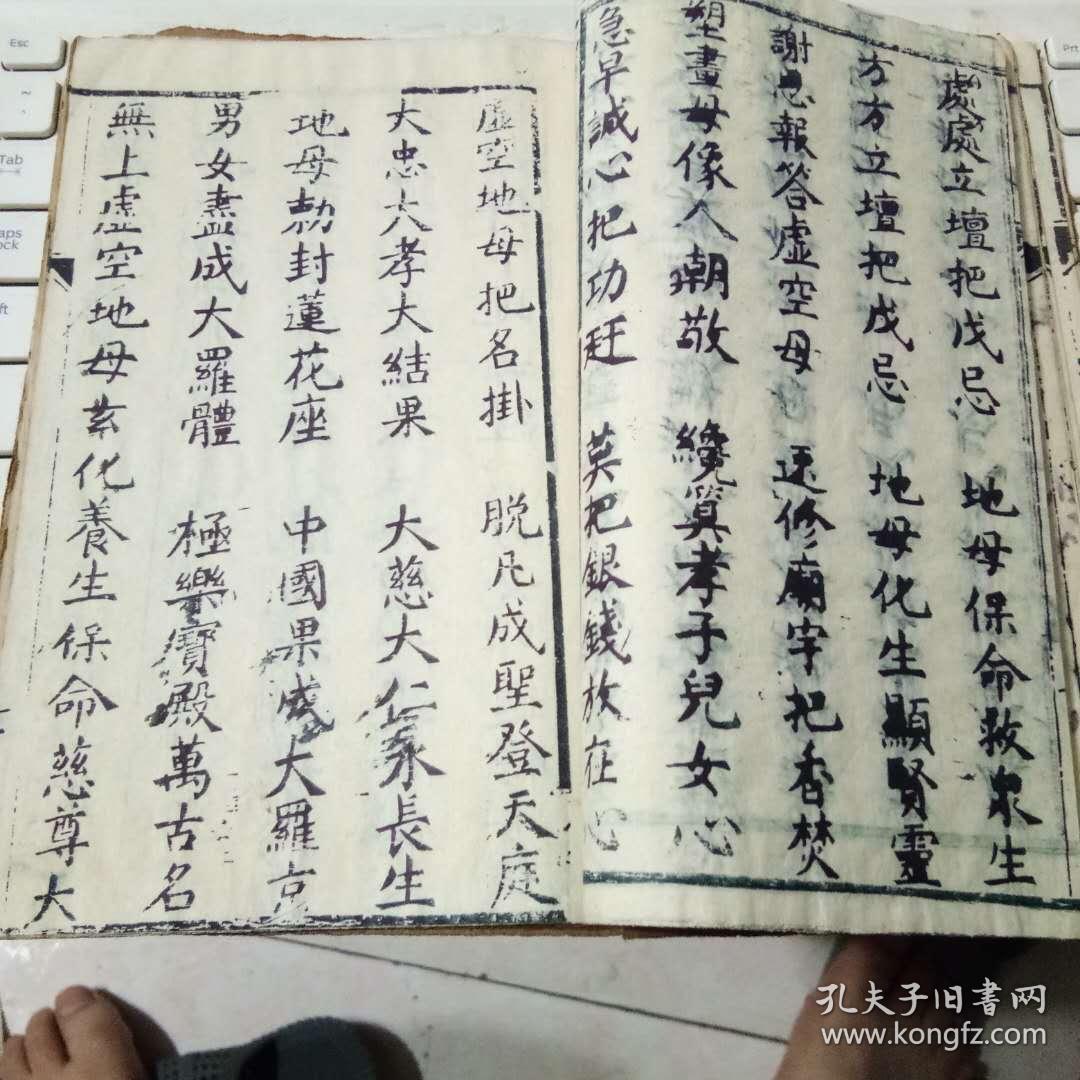 處處立壇把戊忌 地母保命救衆生
方方立壇把戊忌 地母化生顯賢靈
謝恩報答虛空母 修廟宇把香焚
塑畫母像人朝敬 纔算孝子兒女心
急早誠心把功 莫把銀錢放在心
虛空地母把名掛 脫凡成聖登天庭
大忠大孝大結果 大慈大仁永長生
地母勅封蓮花座 中國果成大羅京
男女盡成大羅體 極樂寶殿萬古名
無上虛空地母玄化養生保命慈尊大
Esc
Tab
aps
ock
ft
Prt
孔夫子旧书网
www.kongfz.com